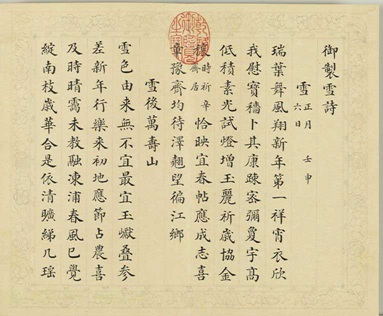 御製雪詩
雪 正月六日 壬申
瑞葉舞風翔新年第一祥宵衣欣
我慰寶穡卜其康踈密彌夐宇高
低積素光試燈增玉麗祈歲協金
穰 時祈辛齋居 恰映宜春帖應成志喜
章豫齊均待澤翹望徧江鄉
雪後萬壽山
雪色由来無不宜最宜玉巘疊參
差新年行樂来初地應節占農喜
及時晴靄未教融凍浦春風已覺
綻南枝歲華合是依清曠綈几瑶